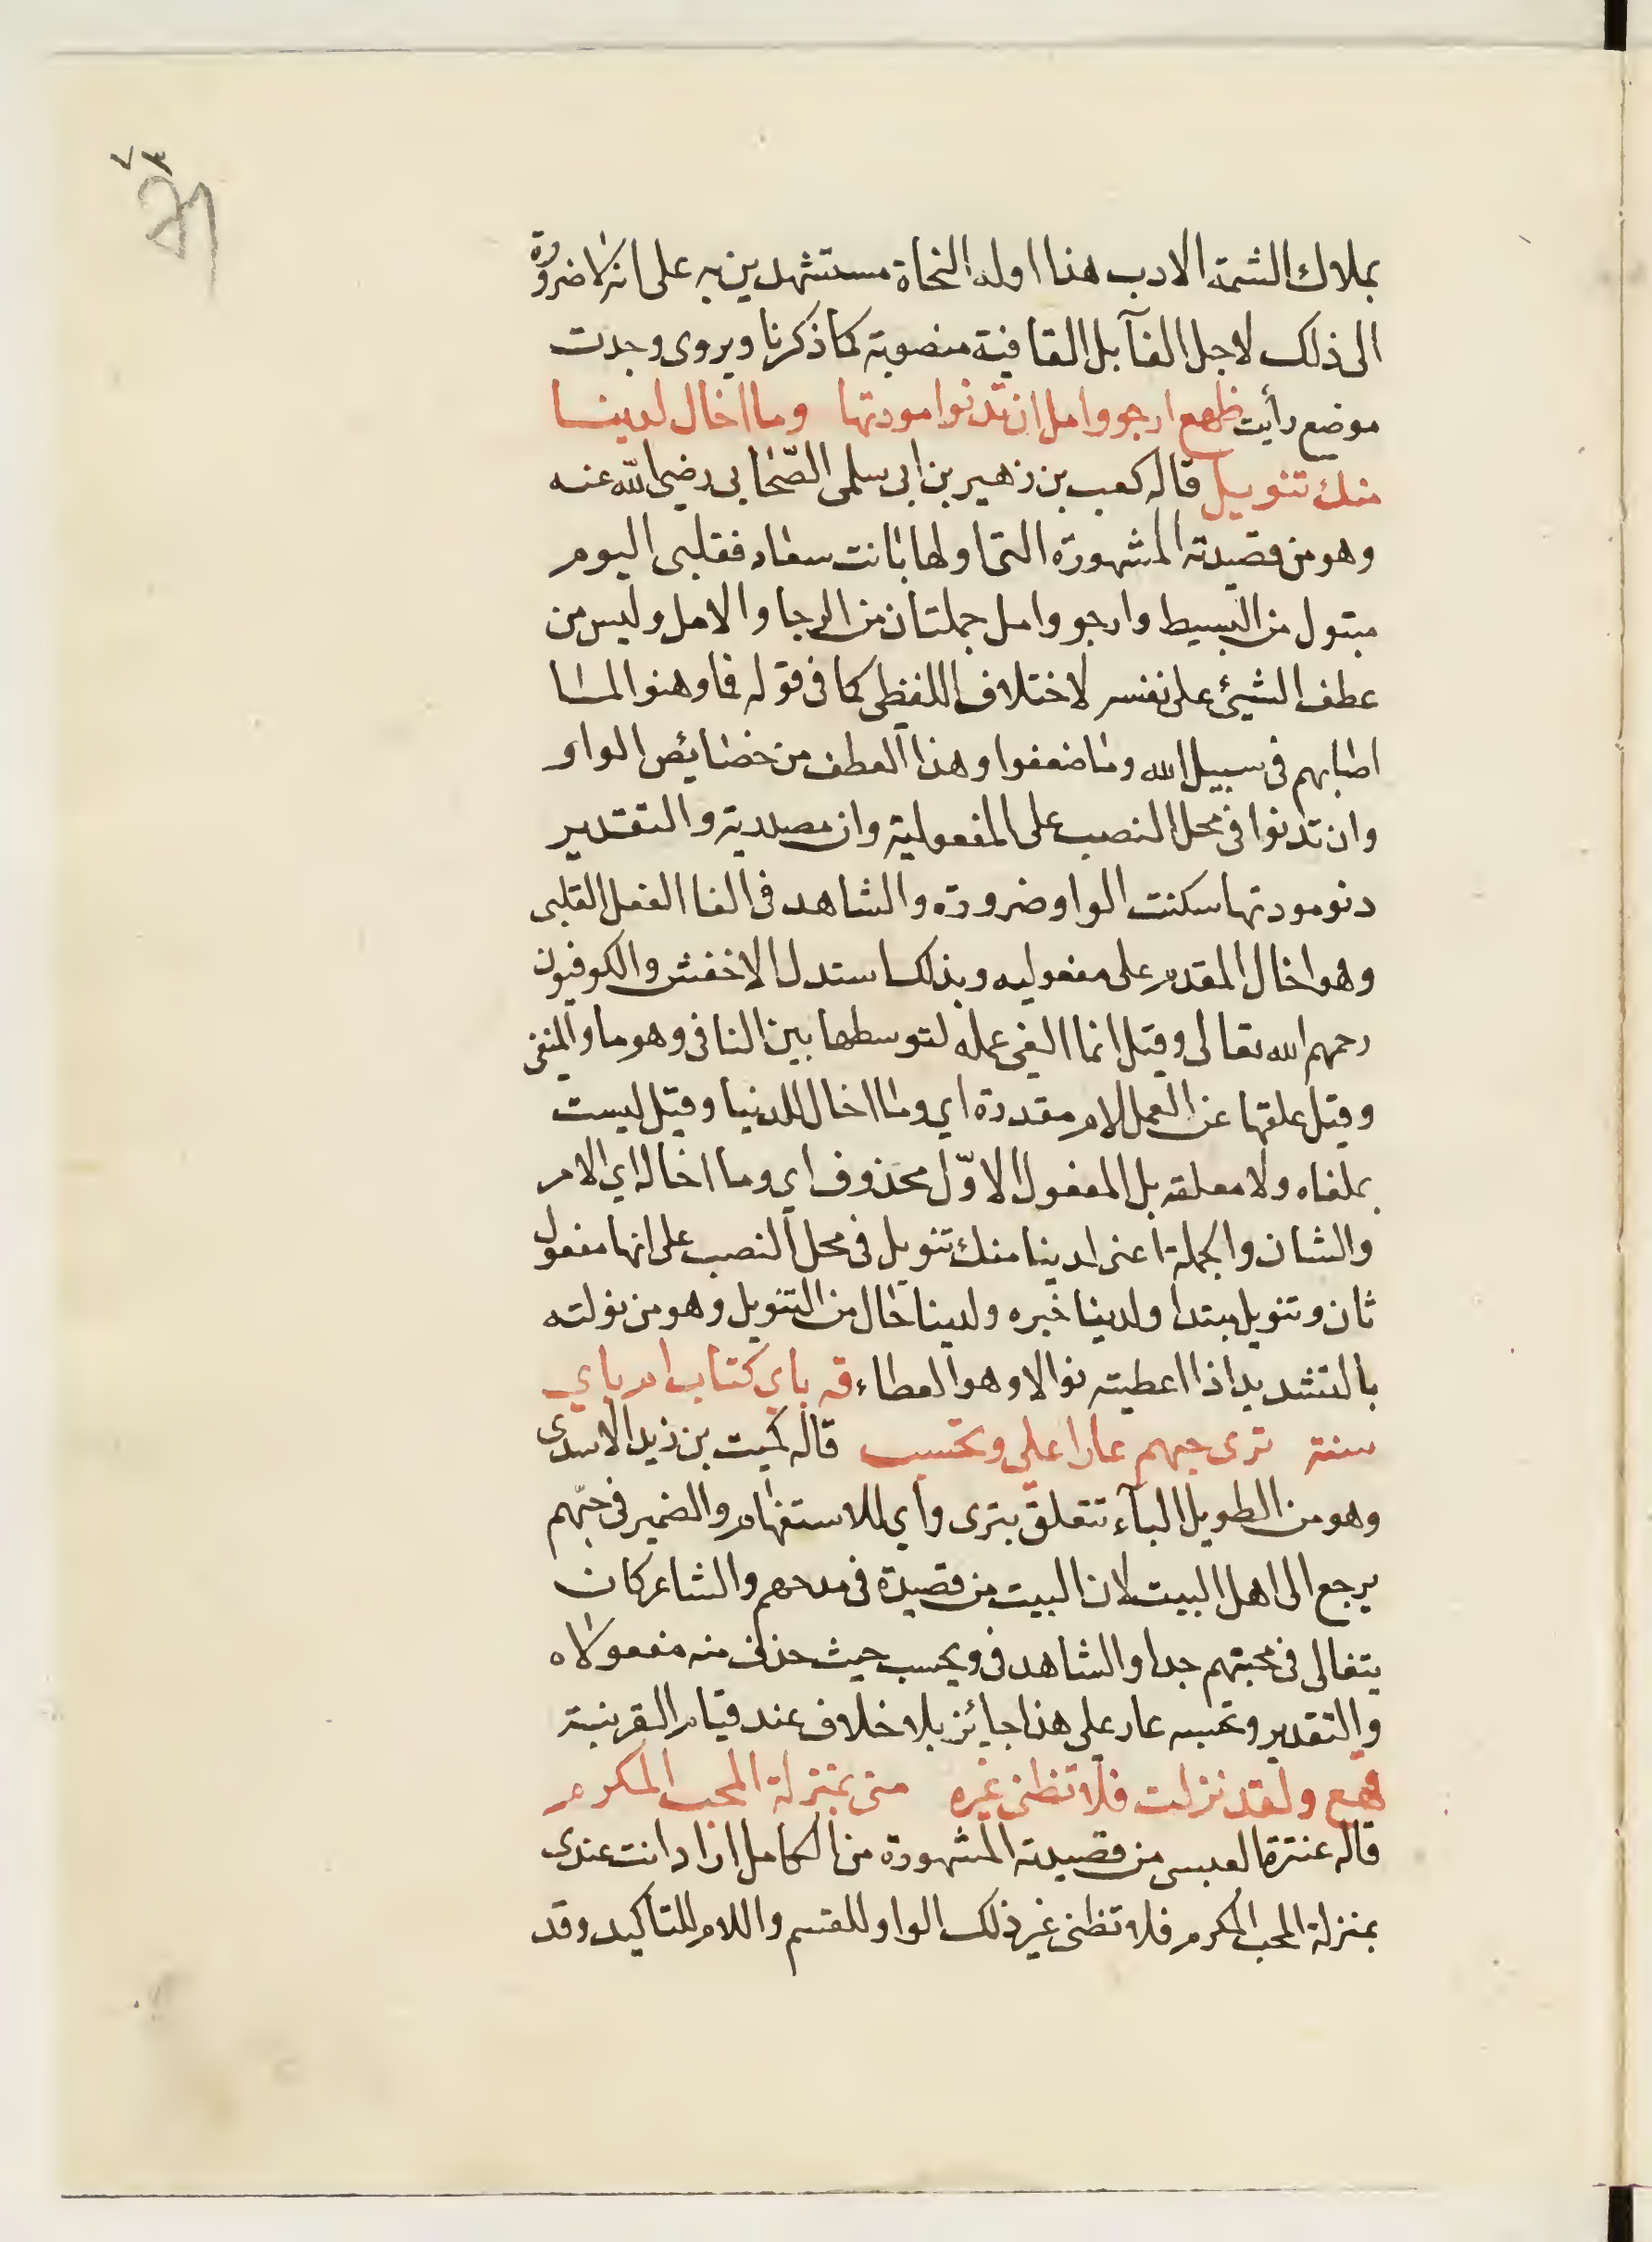 ٧٣
بملاك الشمة الادب هنا اوله النحاة مستشهدين به على انه لا ضرورة
الى ذلك لاجل الفآ بل القافية منصوبة كما ذكرنا ويروى وجدت
موضع رأيت ظهع ارجو وامل ان تدنوا مودتها وما اخال لدينا
منك تنويل قاله كعب بن زهير بن ابى سلمى الصّحابى رضى الله عنه
وهو من قصيدته المشهورة التى اولها بانت سعاد فقلبى اليوم
متبول من البسيط وارجو وامل جملتان من الرجا والامل وليس من
عطف الشيئ على نفسه لاختلاف اللفظى كما فى قوله فما وهنوا لما
اصابهم فى سبيل الله وما ضعفوا وهذا العطف من خصايئص الواو
وان تدنوا فى محل النصب على المفعولية وان مصدرية والتقدير
دنو مودتها سكنت الواو ضرورة والشاهد فى الغا الفعل القلبى
وهو اخال المقدم على مفعوليه وبذلك استدل الاخفش والكوفيون
رحمهم الله تعالى وقيل انما الغى عمله لتوسطها بين النافى وهو ما والمنفى
وقيل علقها عن العمل لام مقدرة اي وما اخال للدينا وقيل ليست
بملغاه ولا معلقه بل المفعول الاوّل محذوف اي وما اخاله اي الامر
والشان والجملة اعنى لدينا منك تنويل فى محل النصب على انها مفعول
ثان وتنويل مبتدا ولدينا خبره ولدينا حال من التنويل وهو من نولته
بالتشديد اذا اعطيته نوالا وهو العطاء قه باي كتاب ام باي
سنة ترى حبهم عارا على وتحسب قاله كميت بن زيد الاسدى
وهو من الطويل البآء تتعلق بترى وأي للاستفهام والضمير فى حبّهم
يرجع الى اهل البيت لان البيت من قصيدة فى مدحهم والشاعر كان
يتغالى فى محبتهم جدا والشاهد فى ويحسب حيث حذف منه مفعولاه
والتقدير وتحسبه عار على هذا جايئز بلا خلاف عند قيام القرينة
قهع ولقد نزلت فلا تظنى غيره منى بمنزلة المحب المكرم
قاله عنترة العبسى من قصيدته المشهورة من الكامل اراد انت عندى
بمنزلة المحب المكرم فلا تظنى غير ذلك الواو للقسم واللام للتاكيد وقد